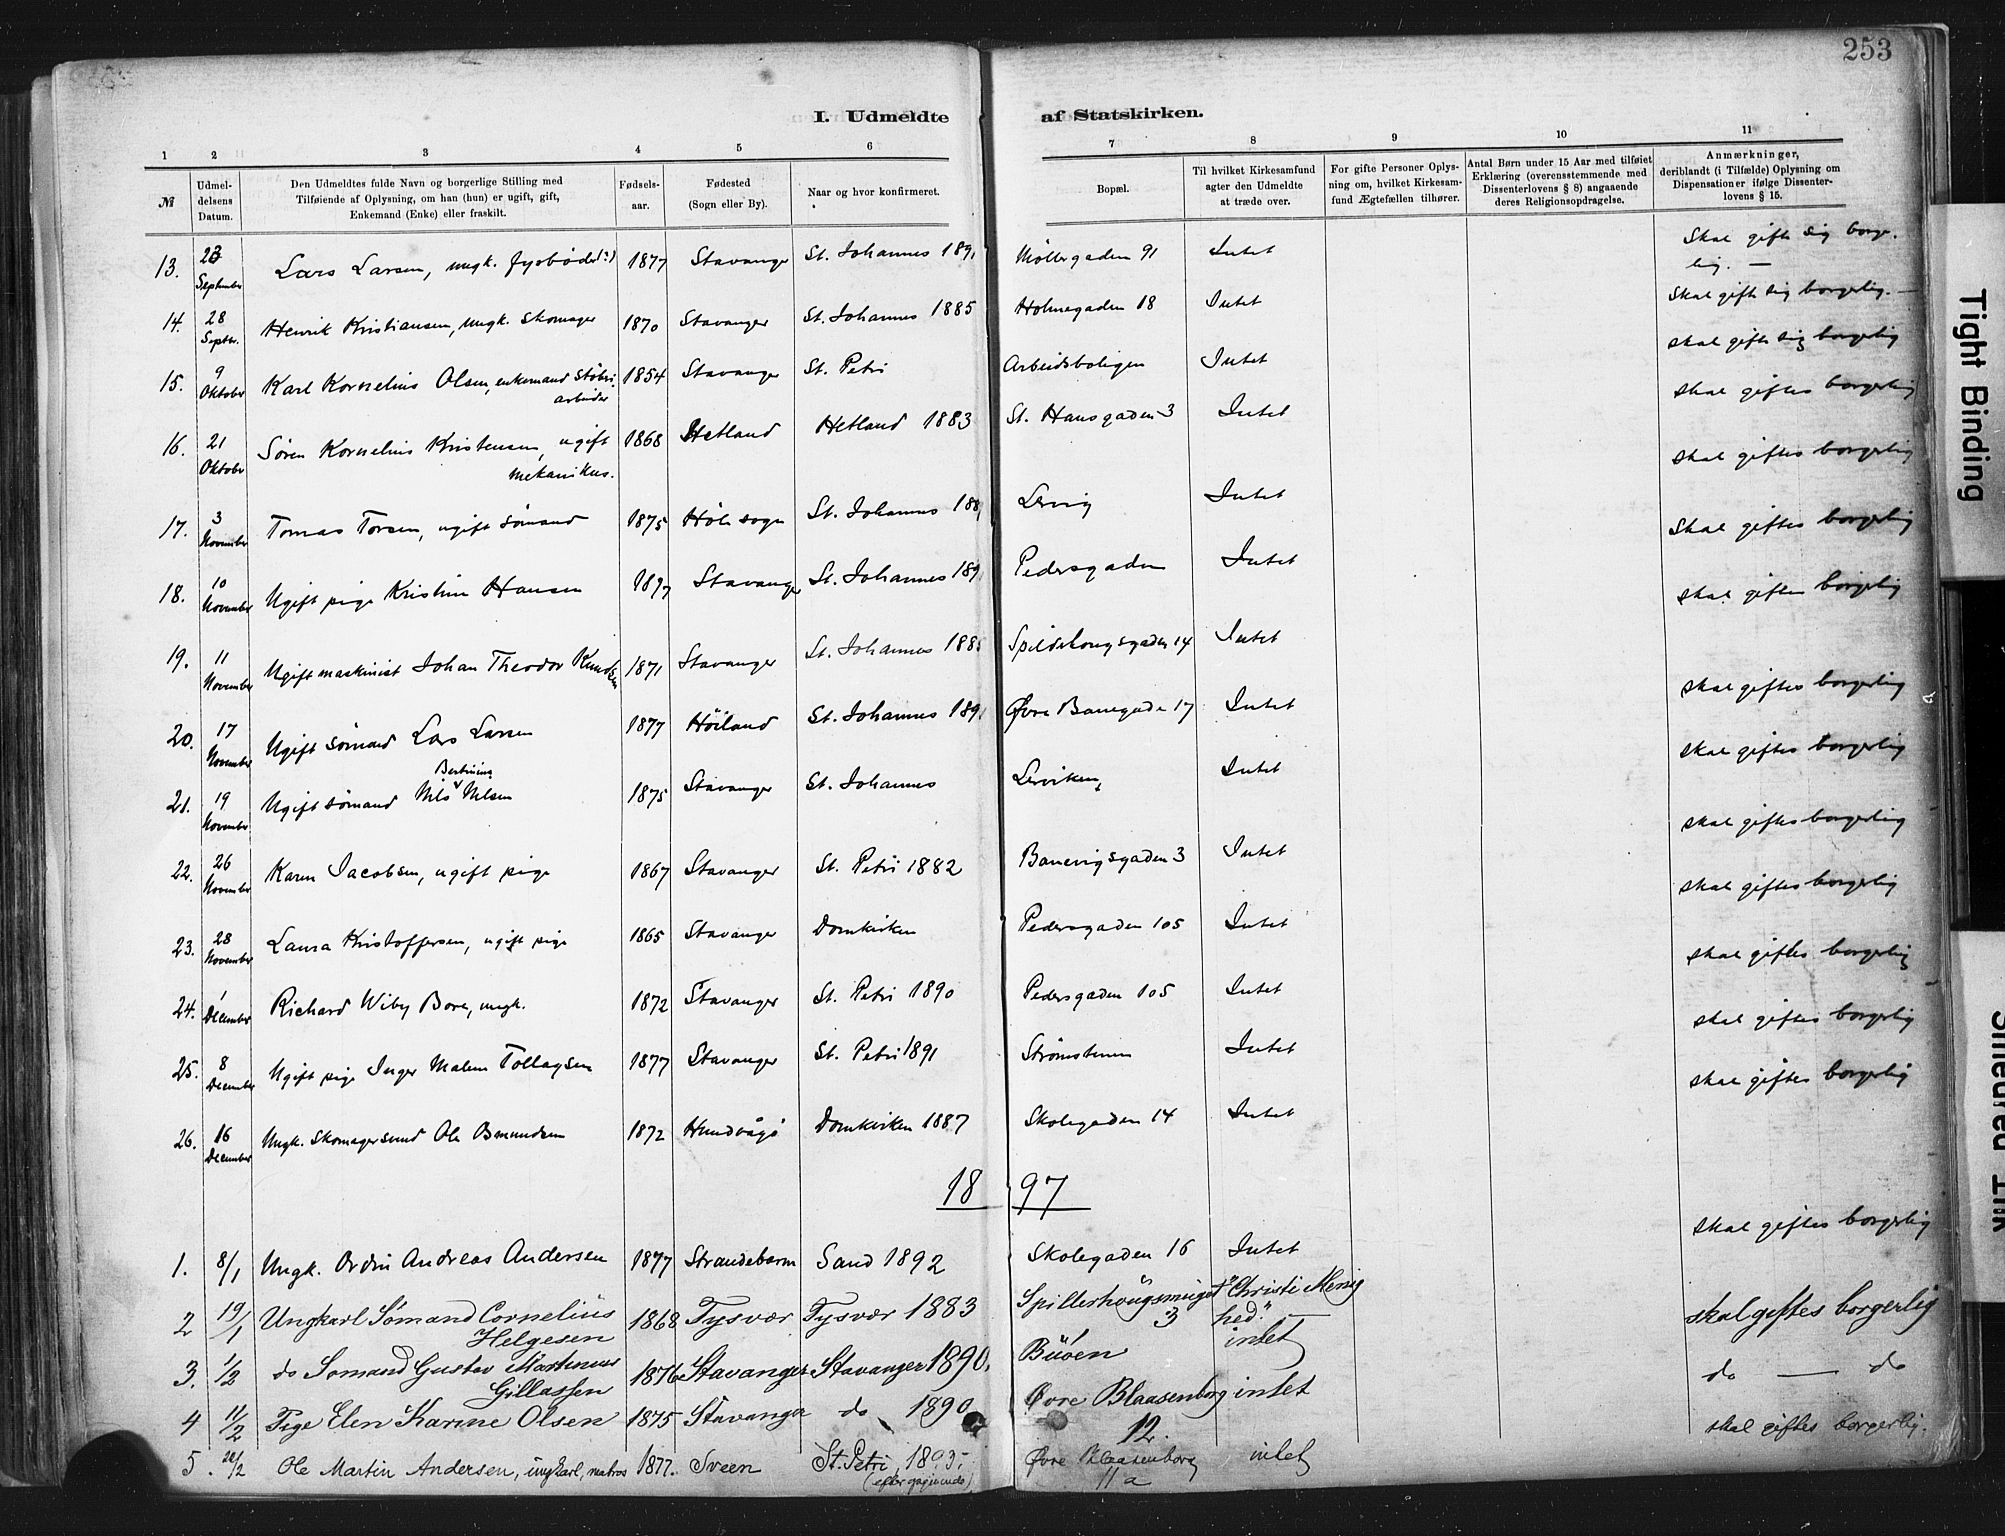 253
I. Udmeldte af Statskirken.
1 2 3 4 5 6 7 8 9 10 11
№
Udmel-
delsens
Datum.
Den Udmeldtes fulde Navn og borgerlige Stilling med
Tilføiende af Oplysning, om han (hun) er ugift, gift,
Enkemand (Enke) eller fraskilt.
Fødsels-
aar.
Fødested
(Sogn eller By).
Naar og hvor konfirmeret.
Bopæl.
Til hvilket Kirkesamfund
agter den Udmeldte
at træde over.
For gifte Personer Oplys-
ning om, hvilket Kirkesam-
fund Ægtefællen tilhører.
Antal Børn under 15 Aar med tilføiet
Erklæring (overensstemmende med
Dissenterlovens § 8) angaaende
deres Religionsopdragelse.
Anmærkninger,
deriblandt (i Tilfælde) Oplysning om
Dispensationer ifølge Dissenter-
lovens § 15.
13. 23 September Lars Larsen, ungk. fyrbøder(?) 1877 Stavanger St. Johannes 1891 Møllergaden 91 Intet Skal gifte sig borger-
lig. —
14. 28 Septbr. Henrik Kristiansen, ungk. skomager 1870 Stavanger St. Johannes 1885 Holmegaden 18 Intet Skal gifte sig borgerlig. —
15. 9 Oktober Karl Kornelius Olsen, enkemand støberi-
arbeider 1854 Stavanger St. Petri Arbeidsboligen Intet skal gifte sig borgerlig
16. 21 Oktober Søren Kornelius Kristensen, ugift
mekanikus. 1868 Hetland Hetland 1883 St. Hansgaden 3 Intet skal giftes borgerlig
17. 3 November Tomas Torsen, ugift sømand 1875 Høle sogn St. Johannes Lervig Intet skal giftes borgerlig
18. 10 November Ugift pige Kristine Hansen 1877 Stavanger St. Johannes 1891 Pedersgaden Intet skal giftes borgerlig
19. 11 November Ugift maskinist Johan Theodor Knudsen 1871 Stavanger St. Johannes 1885 Spilderhougsgaden 14 Intet skal giftes borgerlig
20. 17 November Ugift sømand Lars Larsen 1877 Höiland St. Johannes 1891 Øvre Banegade 17 Intet skal giftes borgerlig
21. 19 November Ugift sømand Nils Bertinius Nilsen 1875 Stavanger St. Johannes Lerviken Intet skal giftes borgerlig
22. 26 November Karen Jacobsen, ugift pige 1867 Stavanger St. Petri 1882 Banevigsgaden 3 Intet skal giftes borgerlig
23. 28 November Laura Kristoffersen, ugift pige 1865 Stavanger Domkirken Pedersgaden 105 Intet skal giftes borgerlig
24. 1 December Richard Wiby Bore, ungk. 1872 Stavanger St. Petri 1890 Pedersgaden 105 Intet skal giftes borgerlig
25. 8 December Ugift pige Inger Malene Tollagsen 1877 Stavanger St. Petri 1891 Strømstenen Intet skal giftes borgerlig
26. 16 December Ungk. skomagersvend Ole Osmundsen 1872 Hundvågö Domkirken 1887 Skolegaden 14 Intet skal giftes borgerlig
1897
1. 8/1 Ungk. Ordin Andreas Andersen 1877 Strandebarm Sand 1892 Skolegaden 16 Intet skal giftes borgerlig
2 19/1 Ungkarl Sømand Cornelius
Helgesen 1868 Tysvær Tysvær 1883 Spillerhougsmuget
3 "Christi Menig
hed" skal giftes borgerlig
3. 1/2 do Sømand Gustav Martinius
Gillassen 1876 Stavanger Stavanger 1890. Buøen intet do — do
4 11/2 Pige Elen Karine Olsen 1875 Stavanger do 1890 Øvre Blaasenborg
12. intet skal giftes borgerlig.
5. 20/2 Ole Martin Andersen, ungkarl, matros 1877. Sveen St. Petri, 1893.
(efter gagnende) Øvre Blaasenborg
11 a intet
Tight Binding
Smeared Ink